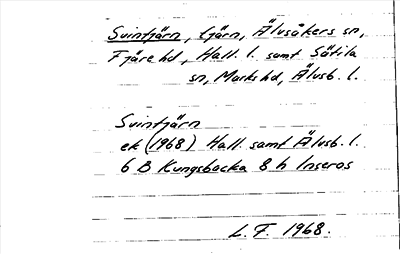 Svintjärn, tjärn, Älvsåkers sn,
Fjäre hd, Hall. l. samt Sätila
sn, Marks hd, Älvsb. l.
Svintjärn
ek (1968) Hall. samt Älvsb. l.
6 B Kungsbacka 8 h Inseros
L. F. 1968.